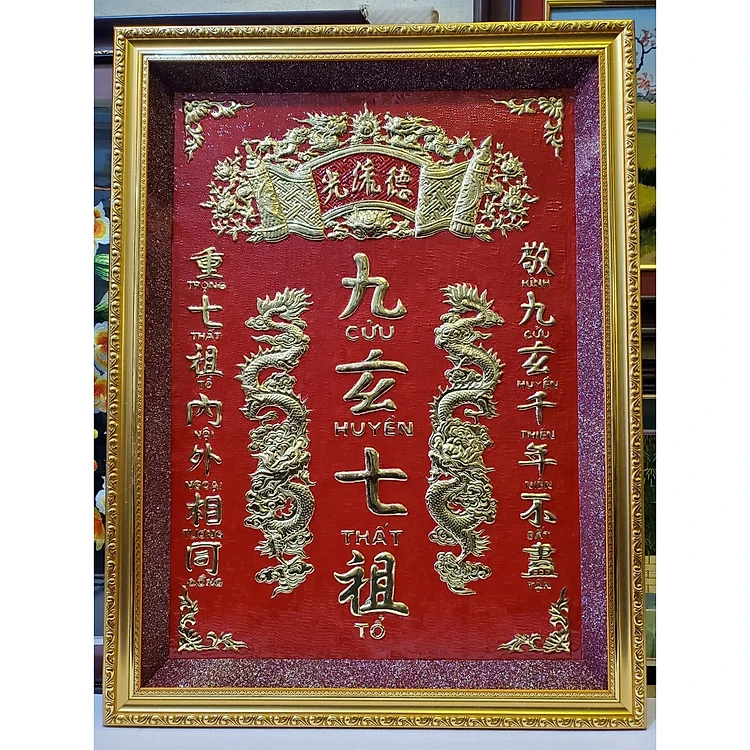 德流光
敬
KÍNH
九
CỬU
玄
HUYỀN
千
THIÊN
年
NIÊN
不
BẤT
盡
TẬN
九
CỬU
玄
HUYỀN
七
THẤT
祖
TỔ
重
TRỌNG
七
THẤT
祖
TỔ
內
NỘI
外
NGOẠI
相
TƯƠNG
同
ĐỒNG